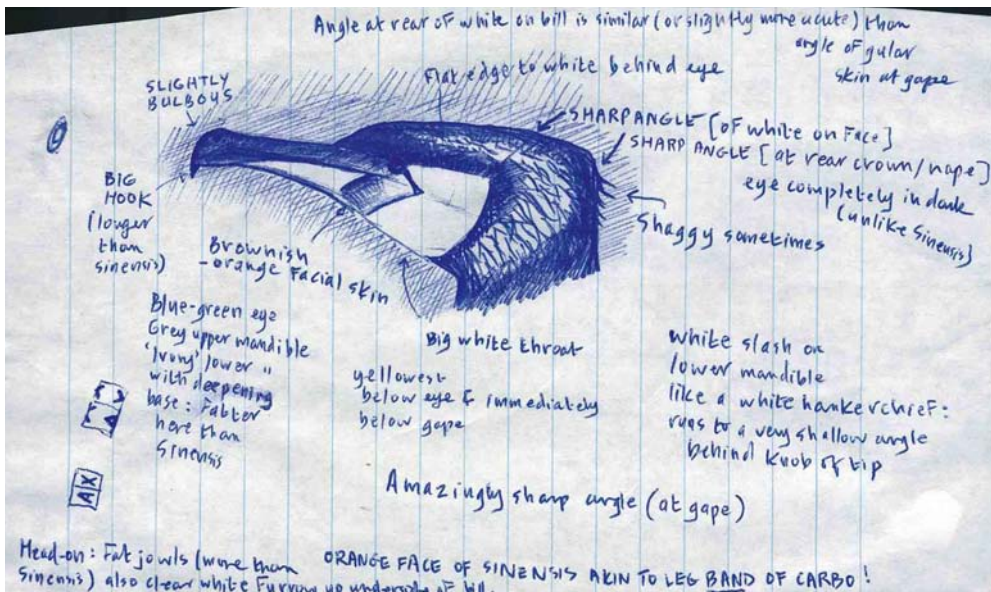 Angle at rear of white on bill is similar (or slightly more acute) than
angle of gular
skin at gape
Flat edge to white behind eye
SLIGHTLY
BULBOUS
SHARP ANGLE [of white on face]
SHARP ANGLE [at rear crown/nape]
eye completely in dark
(unlike Sinensis)
Shaggy sometimes
BIG
HOOK
(longer
than
sinensis)
Brownish
-orange facial skin
Blue-green eye
Grey upper mandible
'Ivory' lower "
with deepening
base: Fatter
here than
Sinensis
Big white throat
yellowest
below eye & immediately
below gape
white slash on
lower mandible
like a white hankerchief:
runs to a very shallow angle
behind knob of tip
Amazingly sharp angle (at gape)
AX
Head-on: Fat jowls (more than
Sinensis) also clear white Furrow up underside of bill.
ORANGE FACE OF SINENSIS AKIN TO LEG BAND OF CARBO!